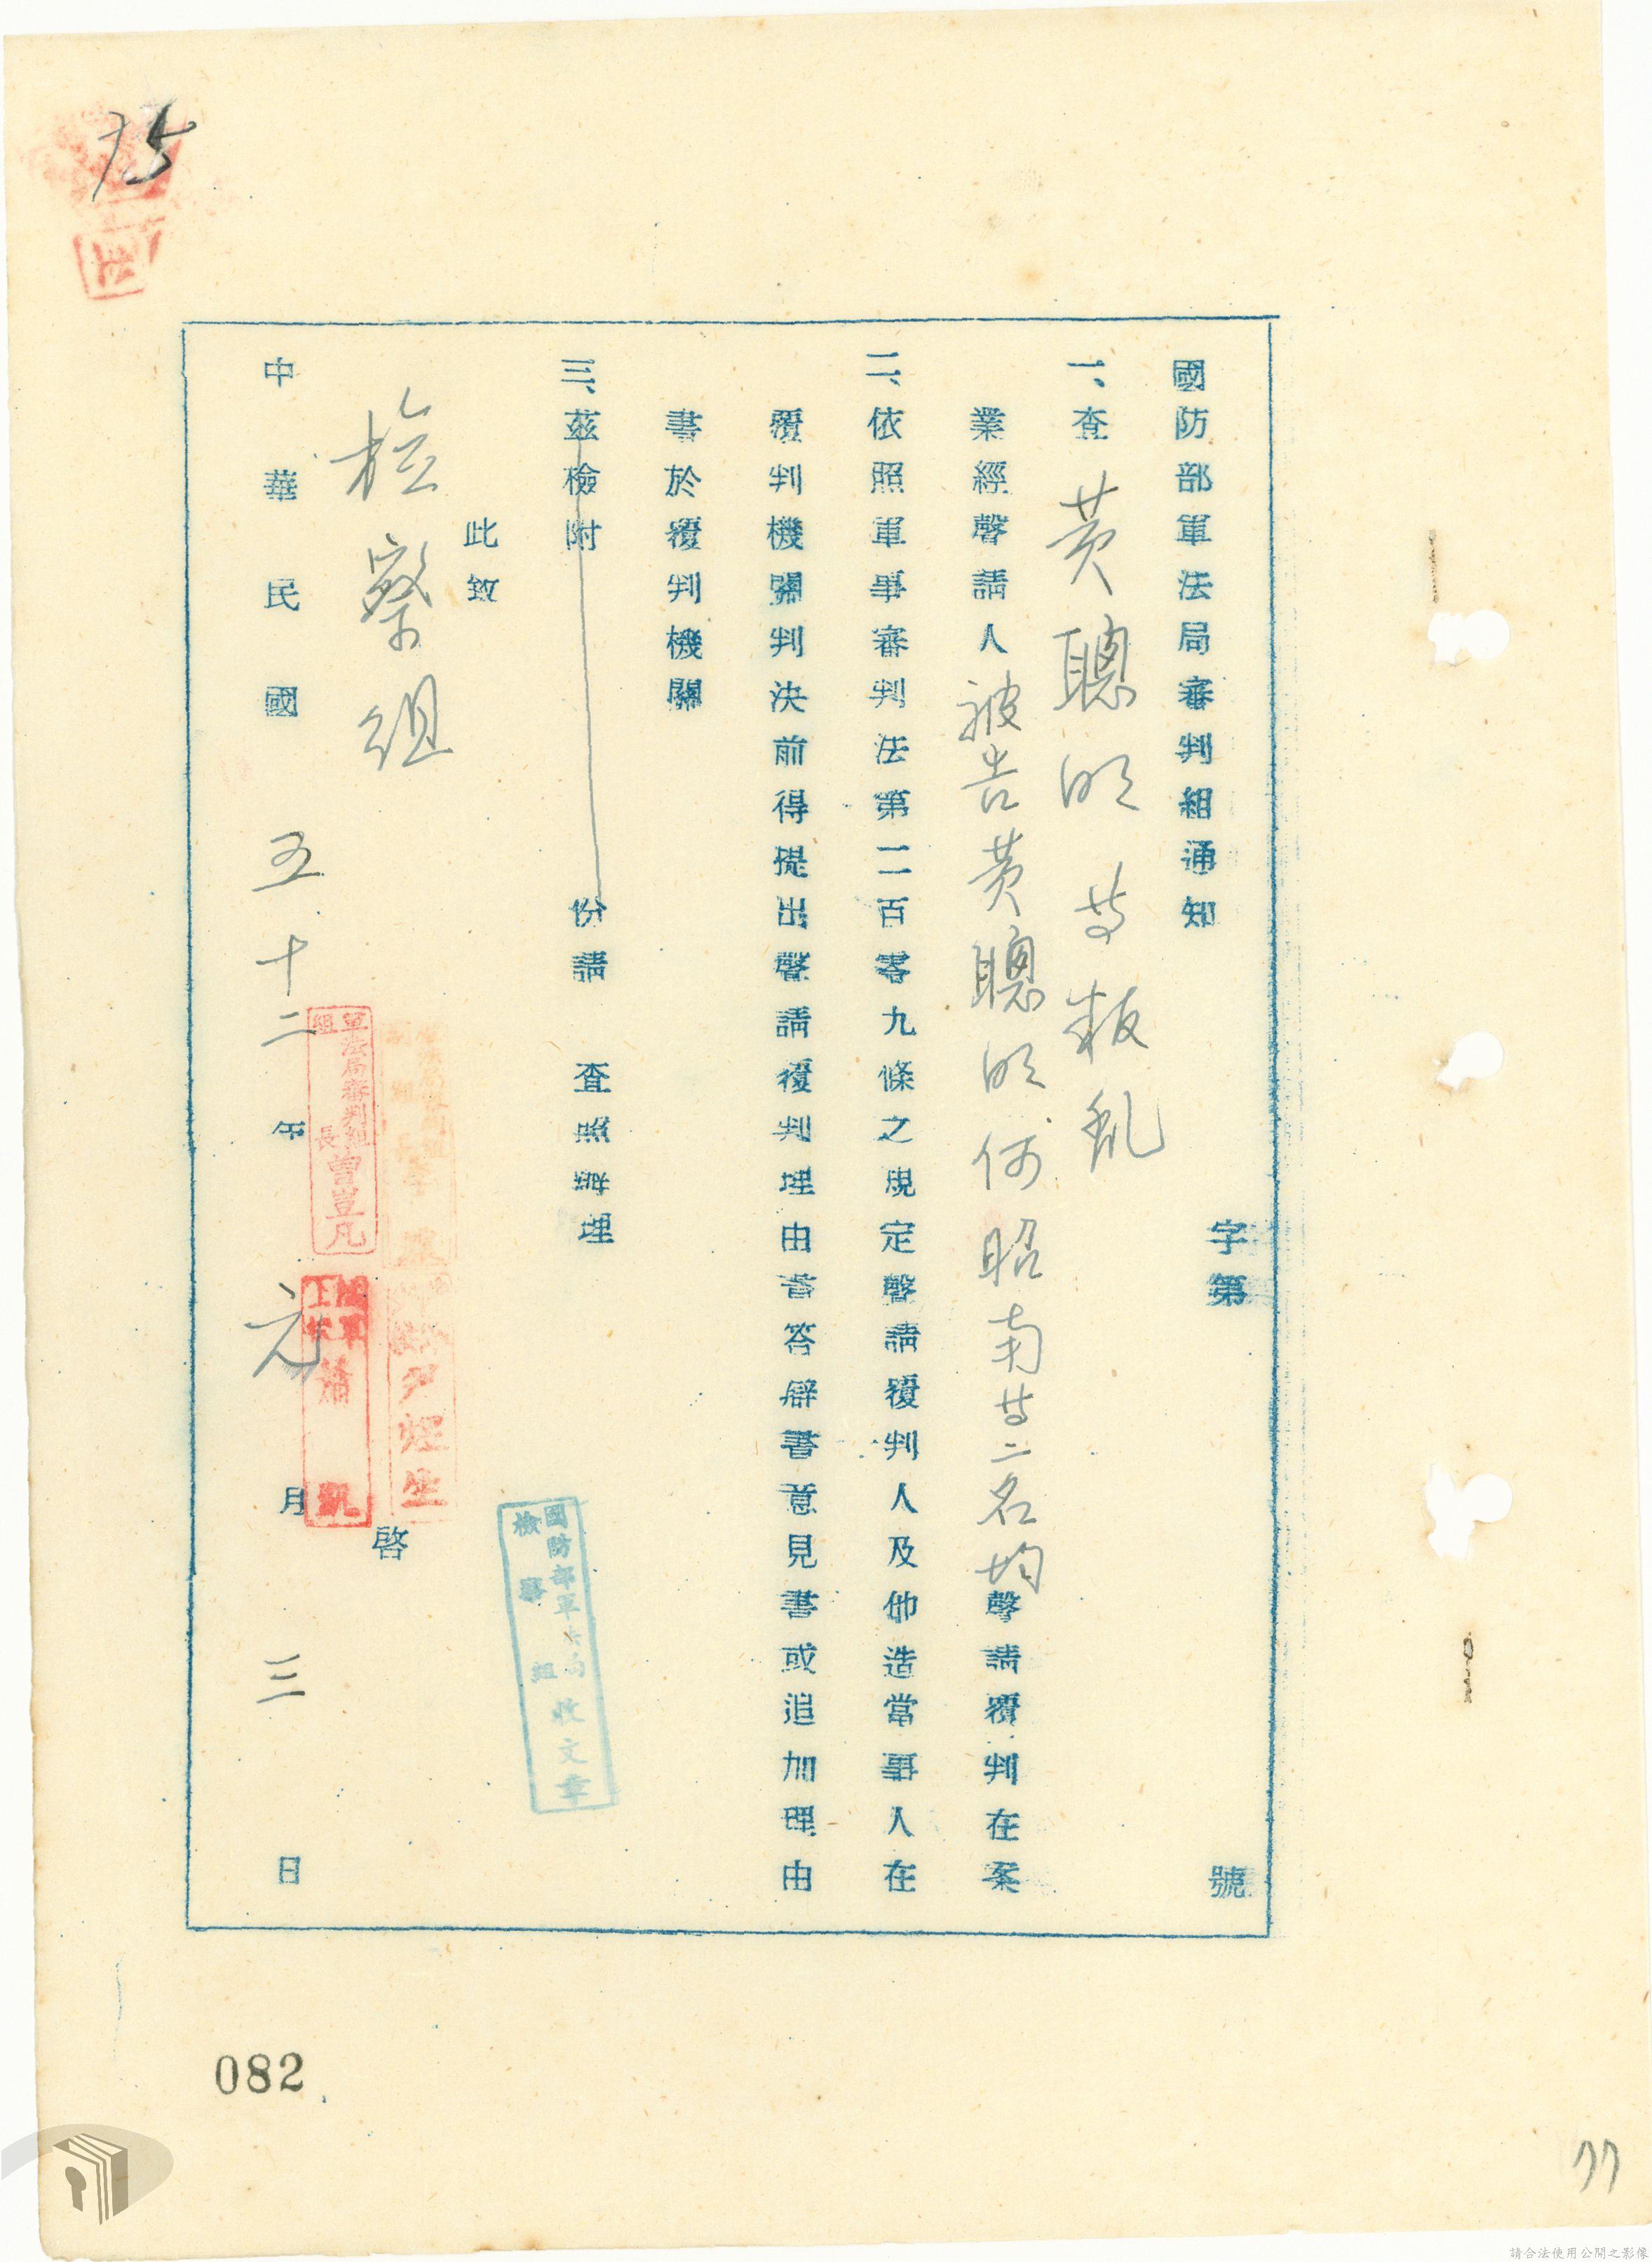 國防部軍法局審判組通知
字第　號
一、查黃聰明等叛亂
業經聲請人被告黃聰明何昭南等二名均聲請覆判在案
二、依照軍事審判法第二百零九條之規定聲請覆判人及他造當事人在
覆判機關判決前得提出聲請覆判理由書答辯書意見書或追加理由
書於覆判機關
三、茲檢附　份請　查照辦理
此致
檢察組
啓
中華民國五十二年元月三日
軍法局審判組
組長曾豈凡
蕭凱
尹煜生
國防部軍法局
檢察組收文章
75
082
77
請合法使用公開之影像